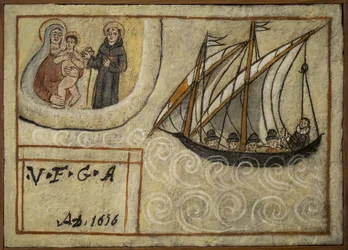 V·F·G·A
AD. 1656